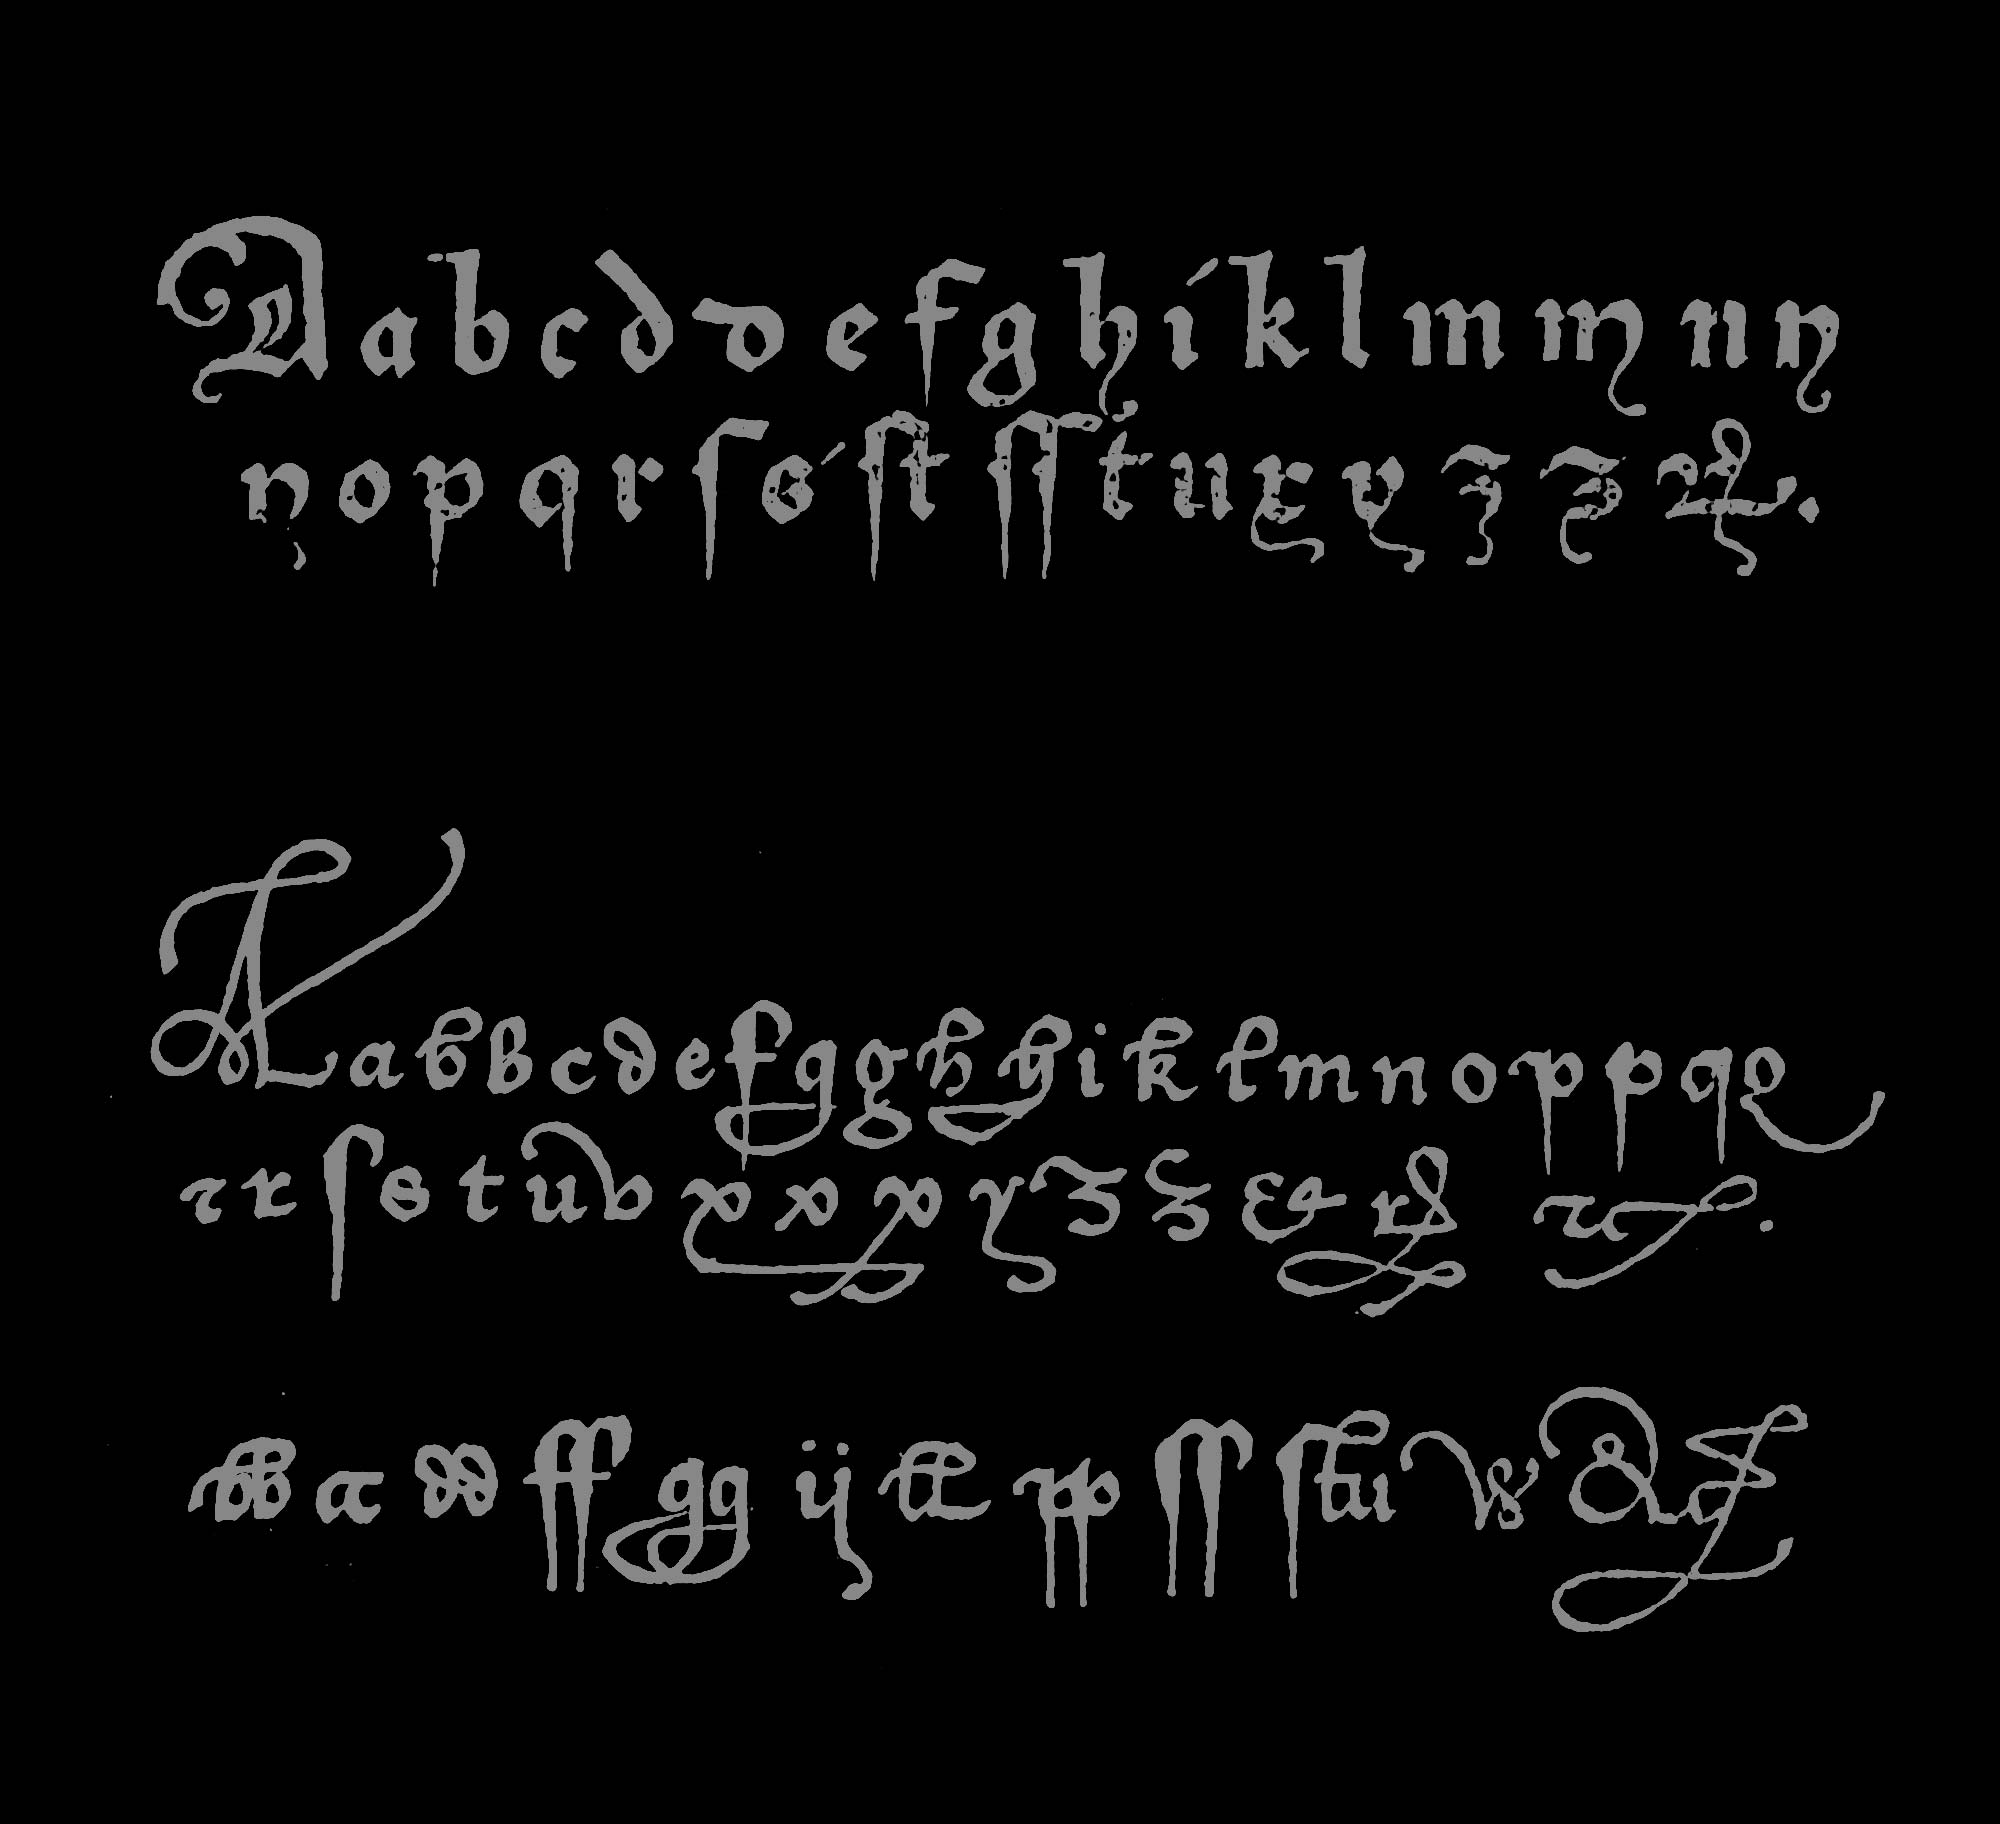 A a b c d d e f g h i k l m m n n
n o p q r ſ s ſt ſſ t u v v z z &.
A a b b c d e f g g h h i k l m n o p p q q
r r ſ s t u v x x x y z z & & &.
bb cc dd ff gg ij ll pp ſſ ſt w &